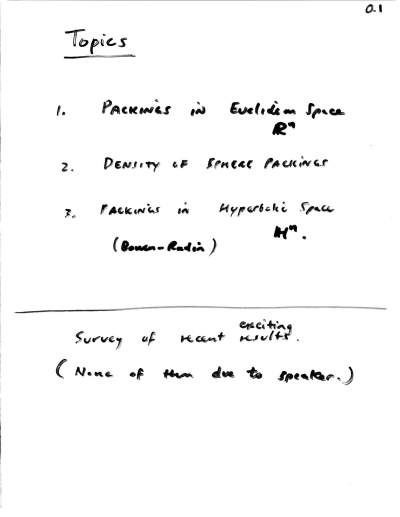 0.1
Topics
1. PACKINGS IN Euclidean Space
R^n
2. DENSITY OF SPHERE PACKINGS
3. PACKINGS in Hyperbolic Space
(Bowen-Radin) H^n.
exciting
Survey of recent results.
(None of them due to speaker.)